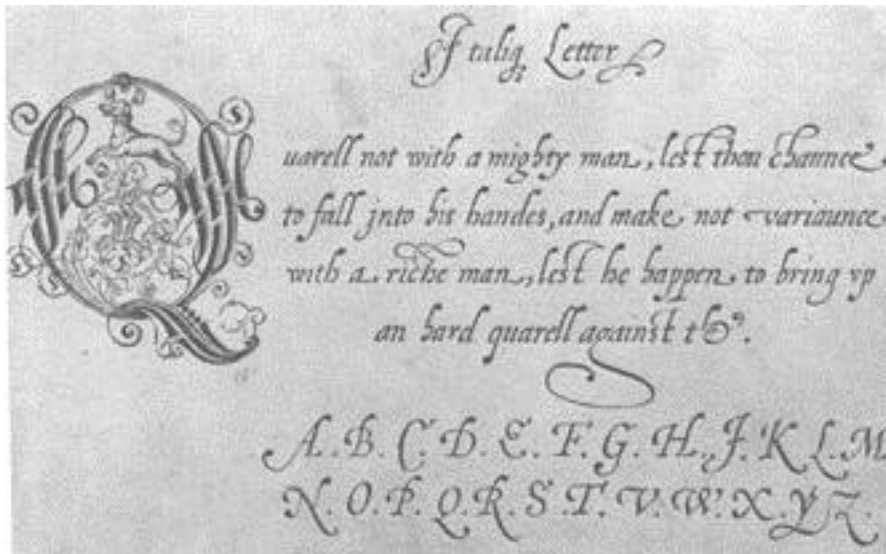 Italiq Letter
Quarell not with a mighty man, lest thou chaunce
to fall jnto his handes, and make not variaunce
with a riche man, lest he happen to bring vp
an hard quarell against the.
A. B. C. D. E. F. G. H. J. K L. M
N. O. P. Q. R. S. T. V. W. X. Y Z.